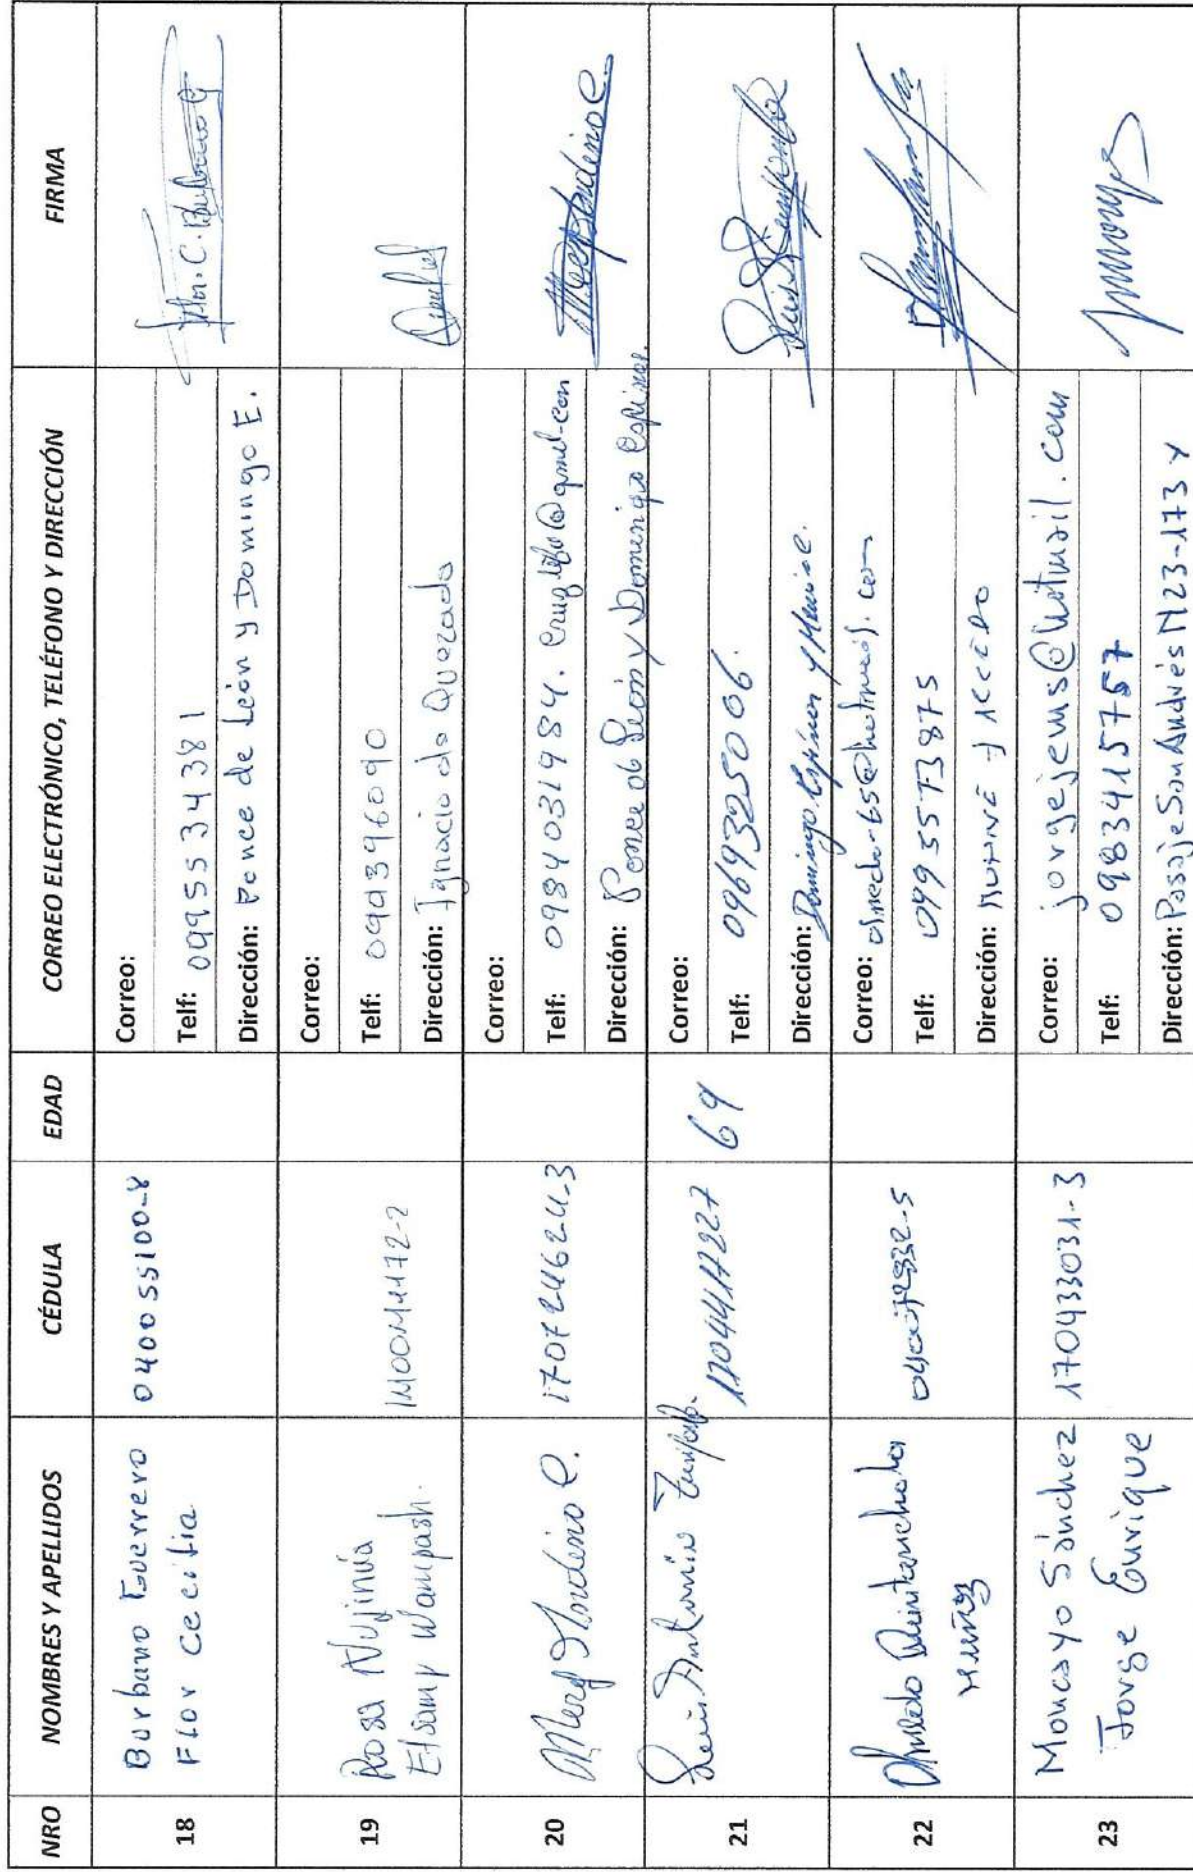 NRO NOMBRES Y APELLIDOS CÉDULA EDAD CORREO ELECTRÓNICO, TELÉFONO Y DIRECCIÓN FIRMA
18
Burbano Guerrero
Flor Cecilia
040055100-8
Correo:
Telf: 0995534381
Dirección: Ponce de León y Domingo E.
Flor. C. Burbano G
19
Rosa Nujinua
Etsamp Wampash.
Correo:
Telf: 0991396090
Dirección: Ignacio de Quezada
20
Andino C.
170724624-3
Correo:
Telf: 0984031984.
Dirección: Ponce de León y Domingo Espinar.
21
Luis Antonio
1704417227
69
Correo:
Telf: 0969325006.
Dirección: Domingo Espinar y
22
Quintanchala
Muñoz
Correo:
Telf: 0995573875
Dirección:
23
Moncayo Sánchez
Jorge Enrique
170433031-3
Correo: jorgejems@hotmail.com
Telf: 0983415757
Dirección: Pasaje San Andrés N23-173 y